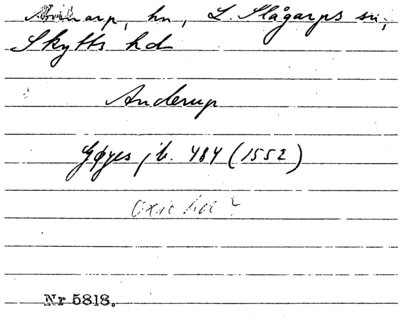 hn, L. Slågarps sn,
Skytts hd
Anderup
Gøyes jb. 484 (1552)
Oxie hd?
Nr 5818.